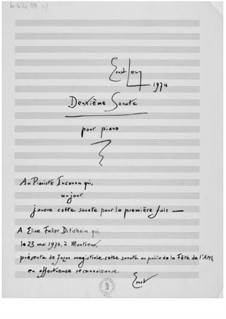 Ernst Levy
1974
Deuxième Sonate
pour piano
Au Pianiste Inconnu qui,
un jour
jouera cette sonate pour la première fois —
A Elise Faller
le 23 mai 1976, à Montreux
présenta de façon magistrale cette sonate au public de la Fête de l'AMS
en affectueuse reconnaissance.
Ernst